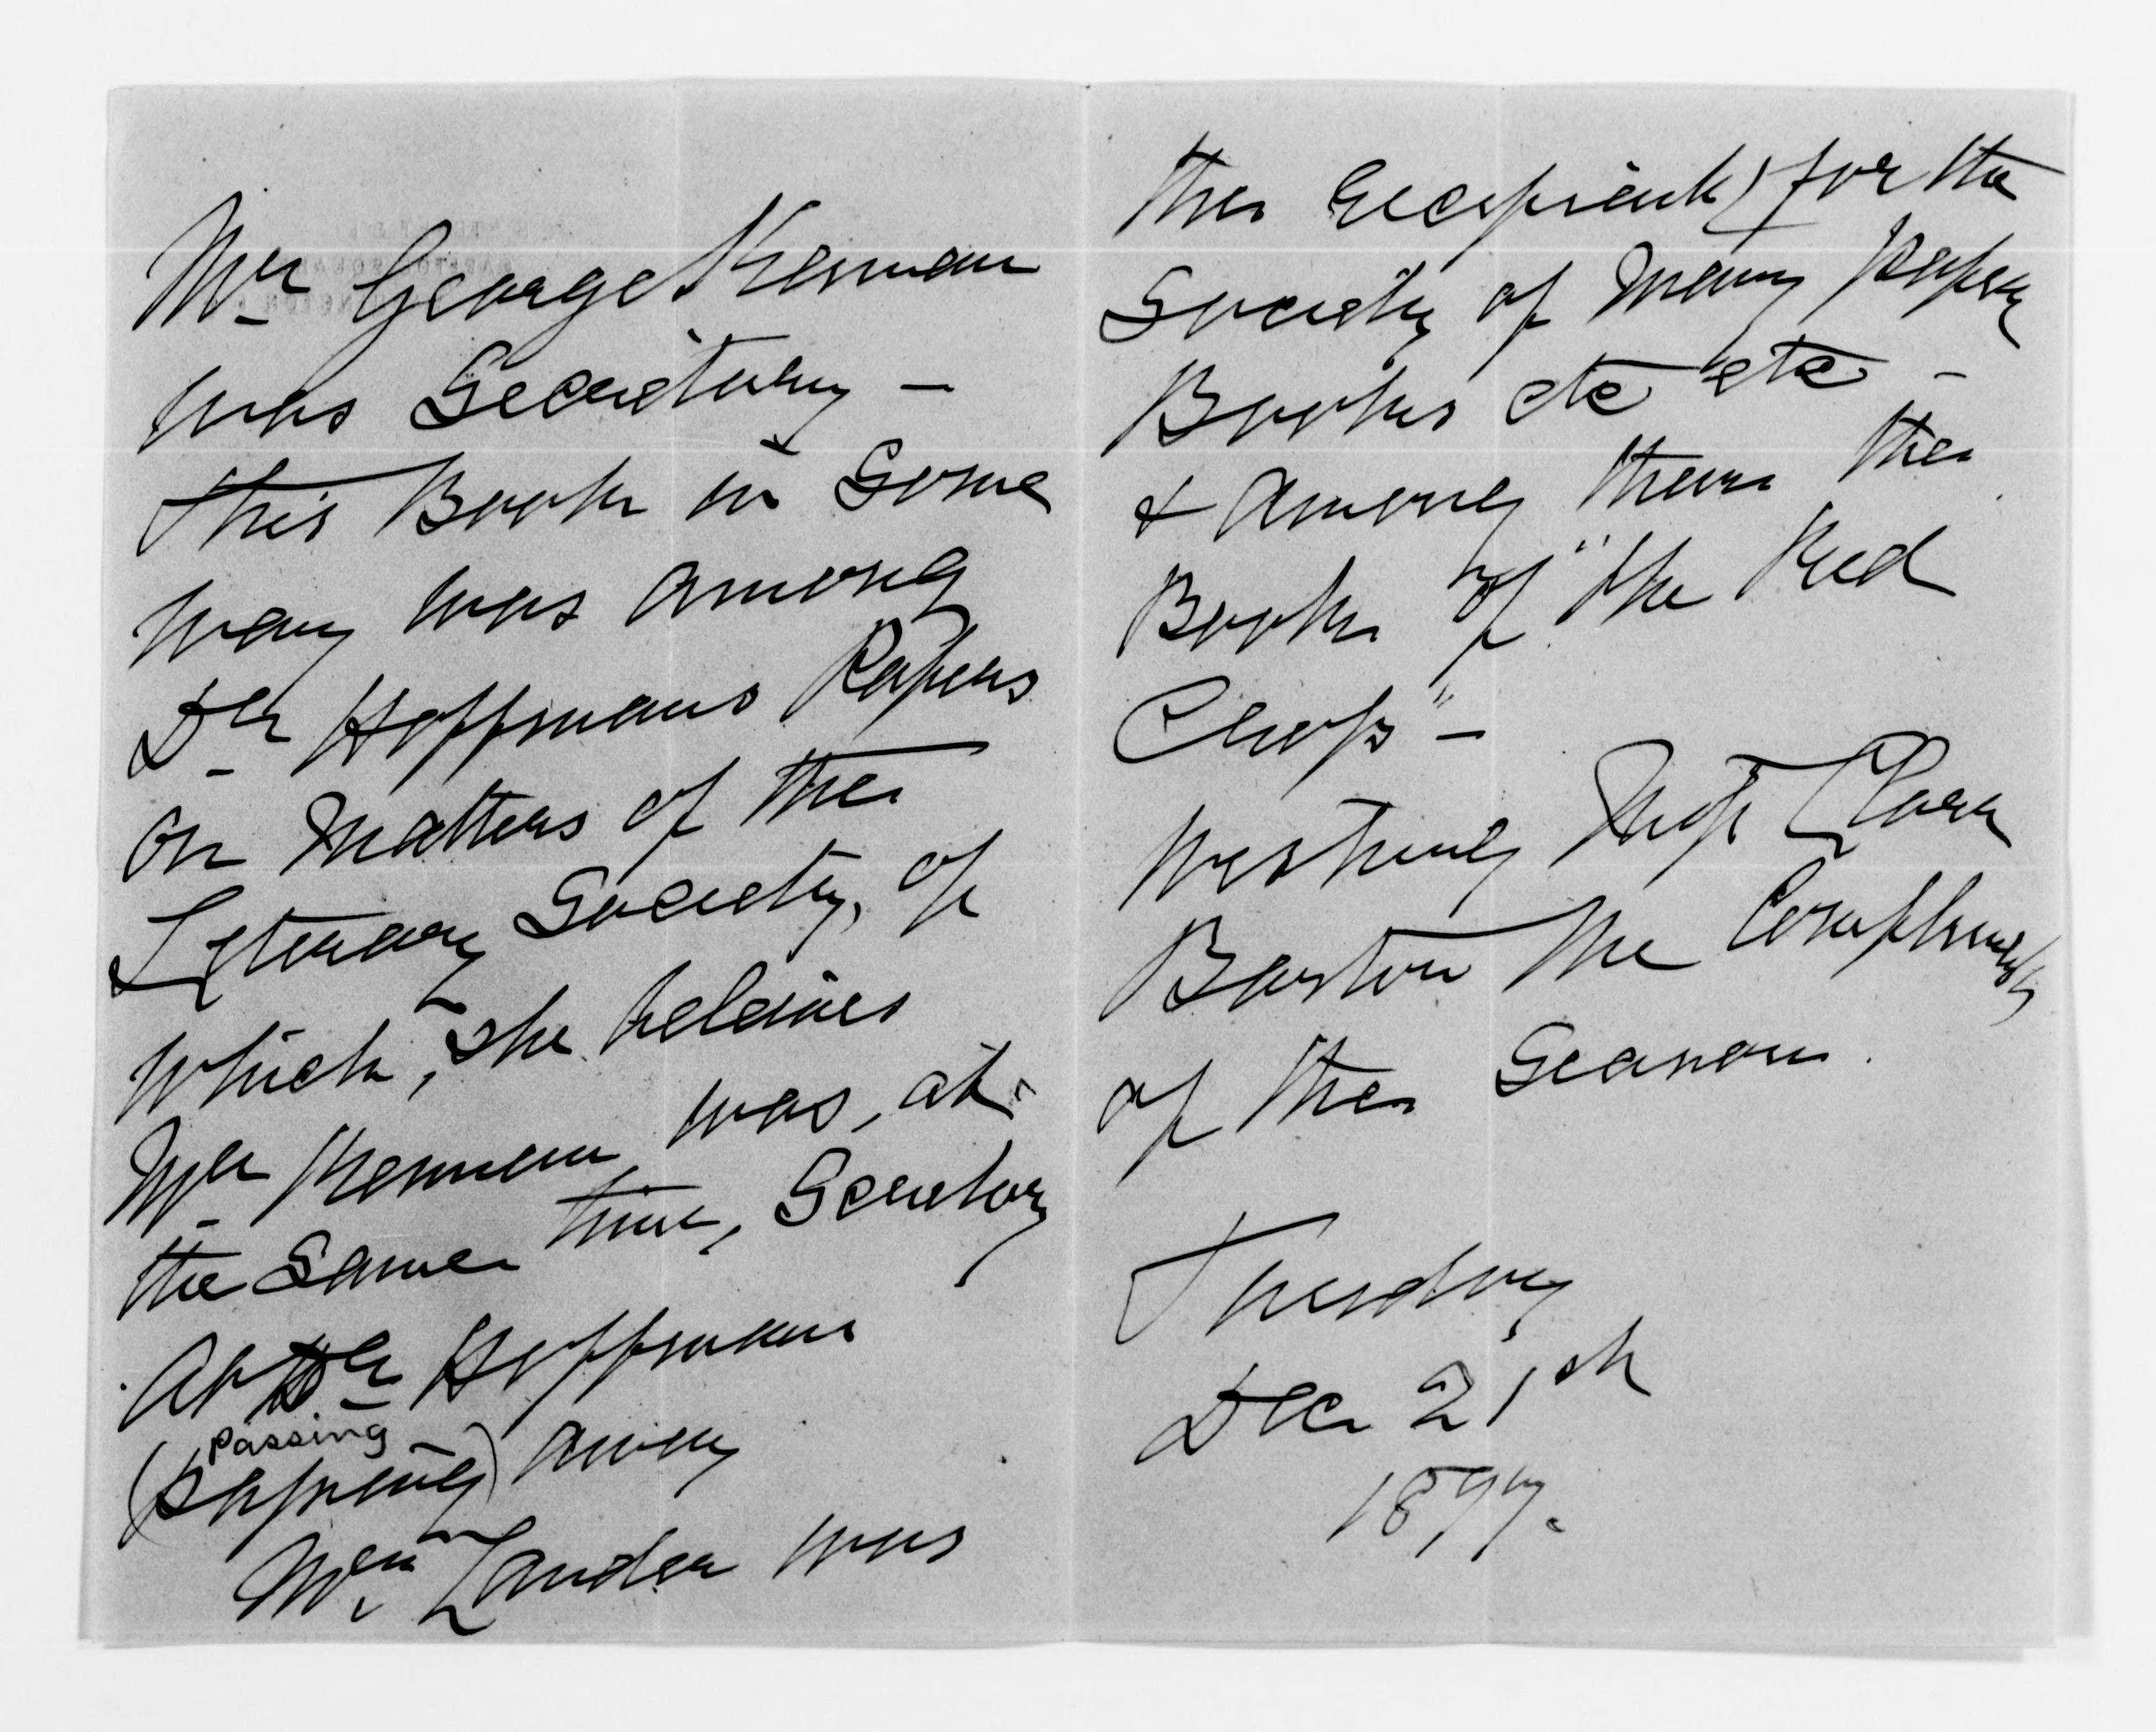 Mr George Kennan
was Secretary –
this Book in Some
way was among
Dr Hoffmans Papers
on Matters of the
Literary Society, of
which, she believes
Mr Kennan was, at
the Same time, Secretary
At Dr Hoffmans
passing
(passing) away
Mrs. Lander was
the recipient, for the
Society of Many papers
Books etc etc –
& Among them the
Book of "the Red
Cross" –
Wishing Miss Clara
Barton the Compliments
of the Season.
Tuesday
Dec 21st
1897.